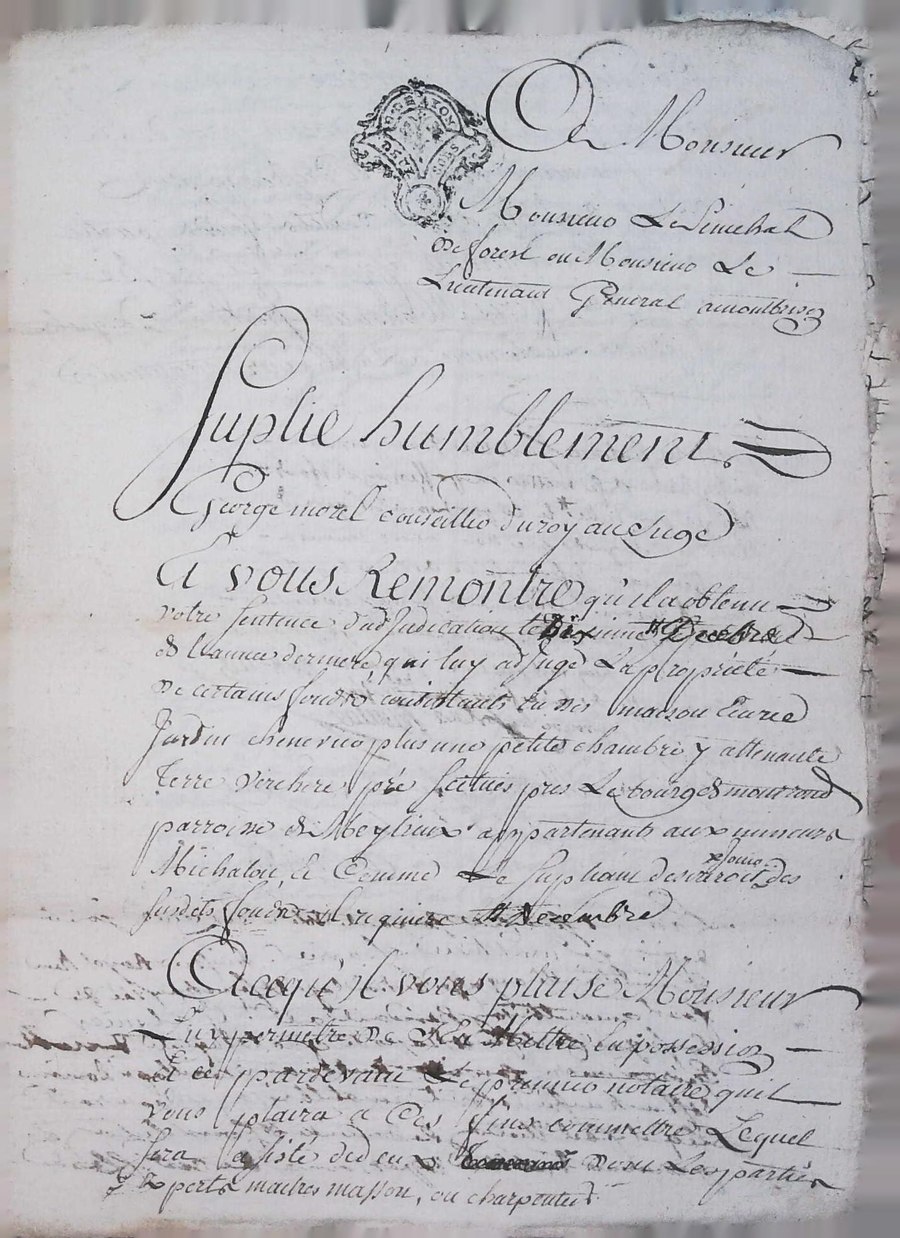 G. DE LYON
CINQ SOLS
A Monsieur
Monsieur Le Senechal
de forest ou Monsieur Le
Lieutenant General a montbrison
Suplie humblement
George morel conseiller du roy au Siege
Et vous Remontre qu'il a obtenu
votre sentence d'adjudication le Decebre
de l'année derniere qui luy adjuge La propriété
de certains fondre consistants en une maison Ecurie
Jardin chenevier plus une petite chambre y attenante
Terre verchere pré scitués pres Le bourg de montrond
parroisse de Meylieux appartenants aux mineurs
Michalou, & Comme Le Supliant des
susdits fonds Decembre
Acequ'il vous plaise Monsieur
Luy permettre de se Mettre En possession
Et ce pardevant Le premier notaire quil
vous plaira a Ces fins commettre Lequel
sera assisté de deux dont Les parties
Experts maitres masson, ou charpentier